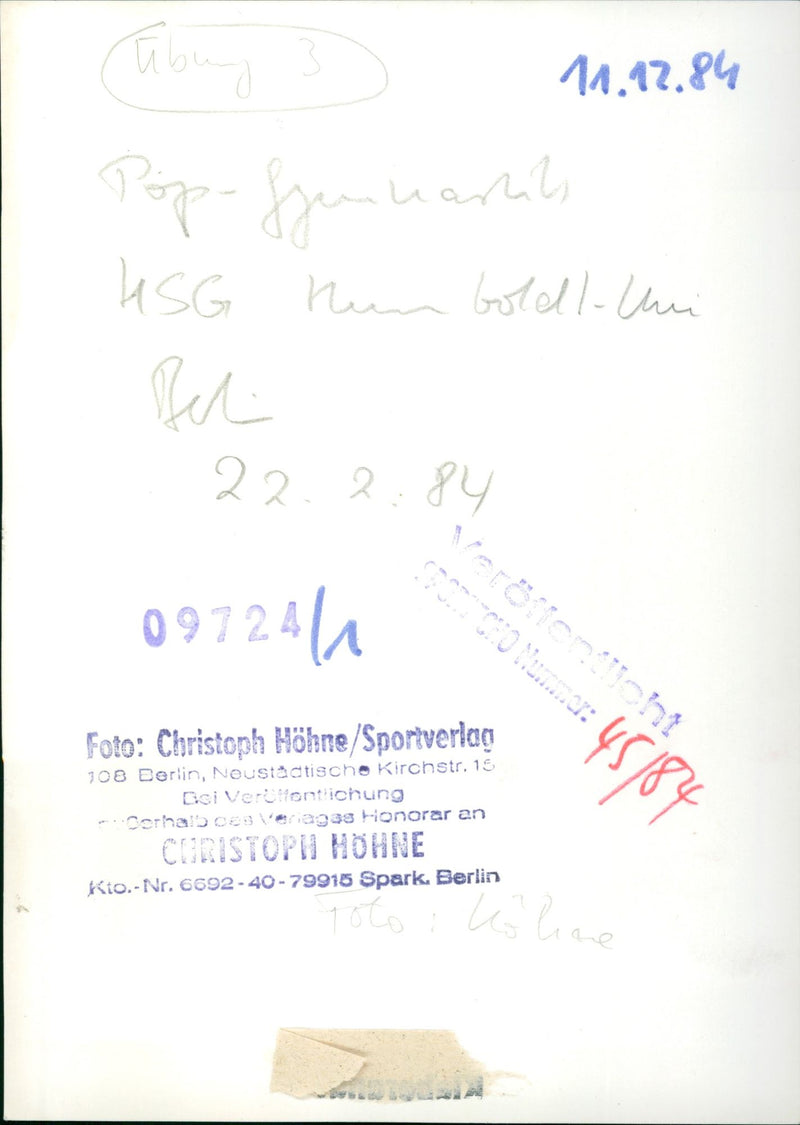 Übung 3
11.12.84
Pop-Gymnastik
HSG Humboldt-Uni
Berlin
22.2.84
Veröffentlicht
SPORT ECHO Nummer: 45/84
09724/1
Foto: Christoph Höhne/Sportverlag
108 Berlin, Neustädtische Kirchstr. 15
Bei Veröffentlichung
außerhalb des Verlages Honorar an
CHRISTOPH HÖHNE
Kto.-Nr. 6692-40-79915 Spark. Berlin
Foto: Höhne